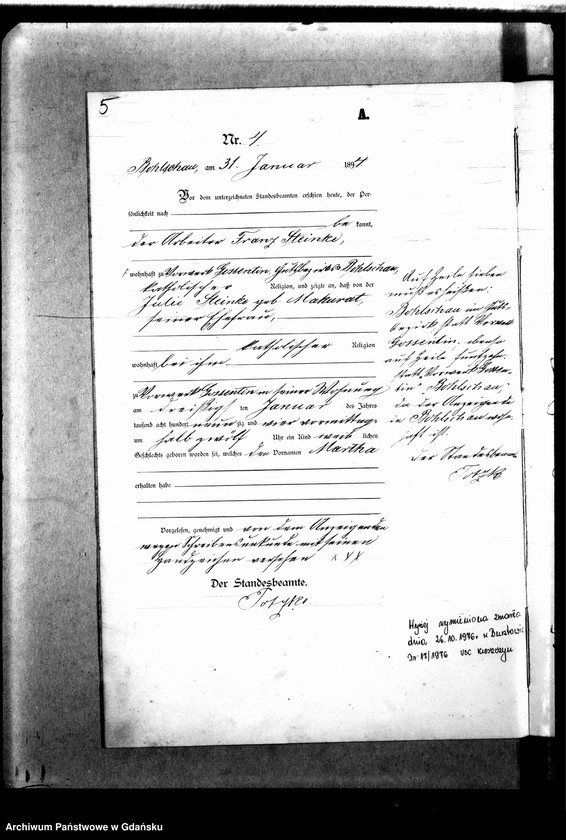 5
A.
Nr. 4
Bohlschau, am 31. Januar 1894
Vor dem unterzeichneten Standesbeamten erschien heute, der Per-
sönlichkeit nach
be kannt,
der Arbeiter Franz Steinke,
wohnhaft zu Vorwerk Gossentin, Gutsbezirks Bohlschau,
katholischer Religion, und zeigte an, daß von der
Julie Steinke geb. Makurat,
seiner Ehefrau,
katholischer Religion
wohnhaft bei ihm
zu Vorwerk Gossentin in seiner Wohnung
am dreißigsten Januar des Jahres
tausend acht hundert neunzig und vier vormittags
um halb zwölf Uhr ein Kind weib lichen
Geschlechts geboren worden sei, welches den Vornamen Martha
erhalten habe
Vorgelesen, genehmigt und von dem Anzeigenden
wegen Schreibensunkunde mit seinem
Handzeichen versehen XXX
Der Standesbeamte.
Auf Zeile sieben
muß es heißen:
Bohlschau im Guts-
bezirk statt Vorwerk
Gossentin, ebenso
auf Zeile fünfzehn
statt Vorwerk Gossen-
tin Bohlschau,
da der Anzeigende
in Bohlschau wohn-
haft ist.
Der Standesbeamte
Wyżej wymieniona zmarła
dnia 26.10.1976 r. w
Nr 17/1976 USC
Archiwum Państwowe w Gdańsku